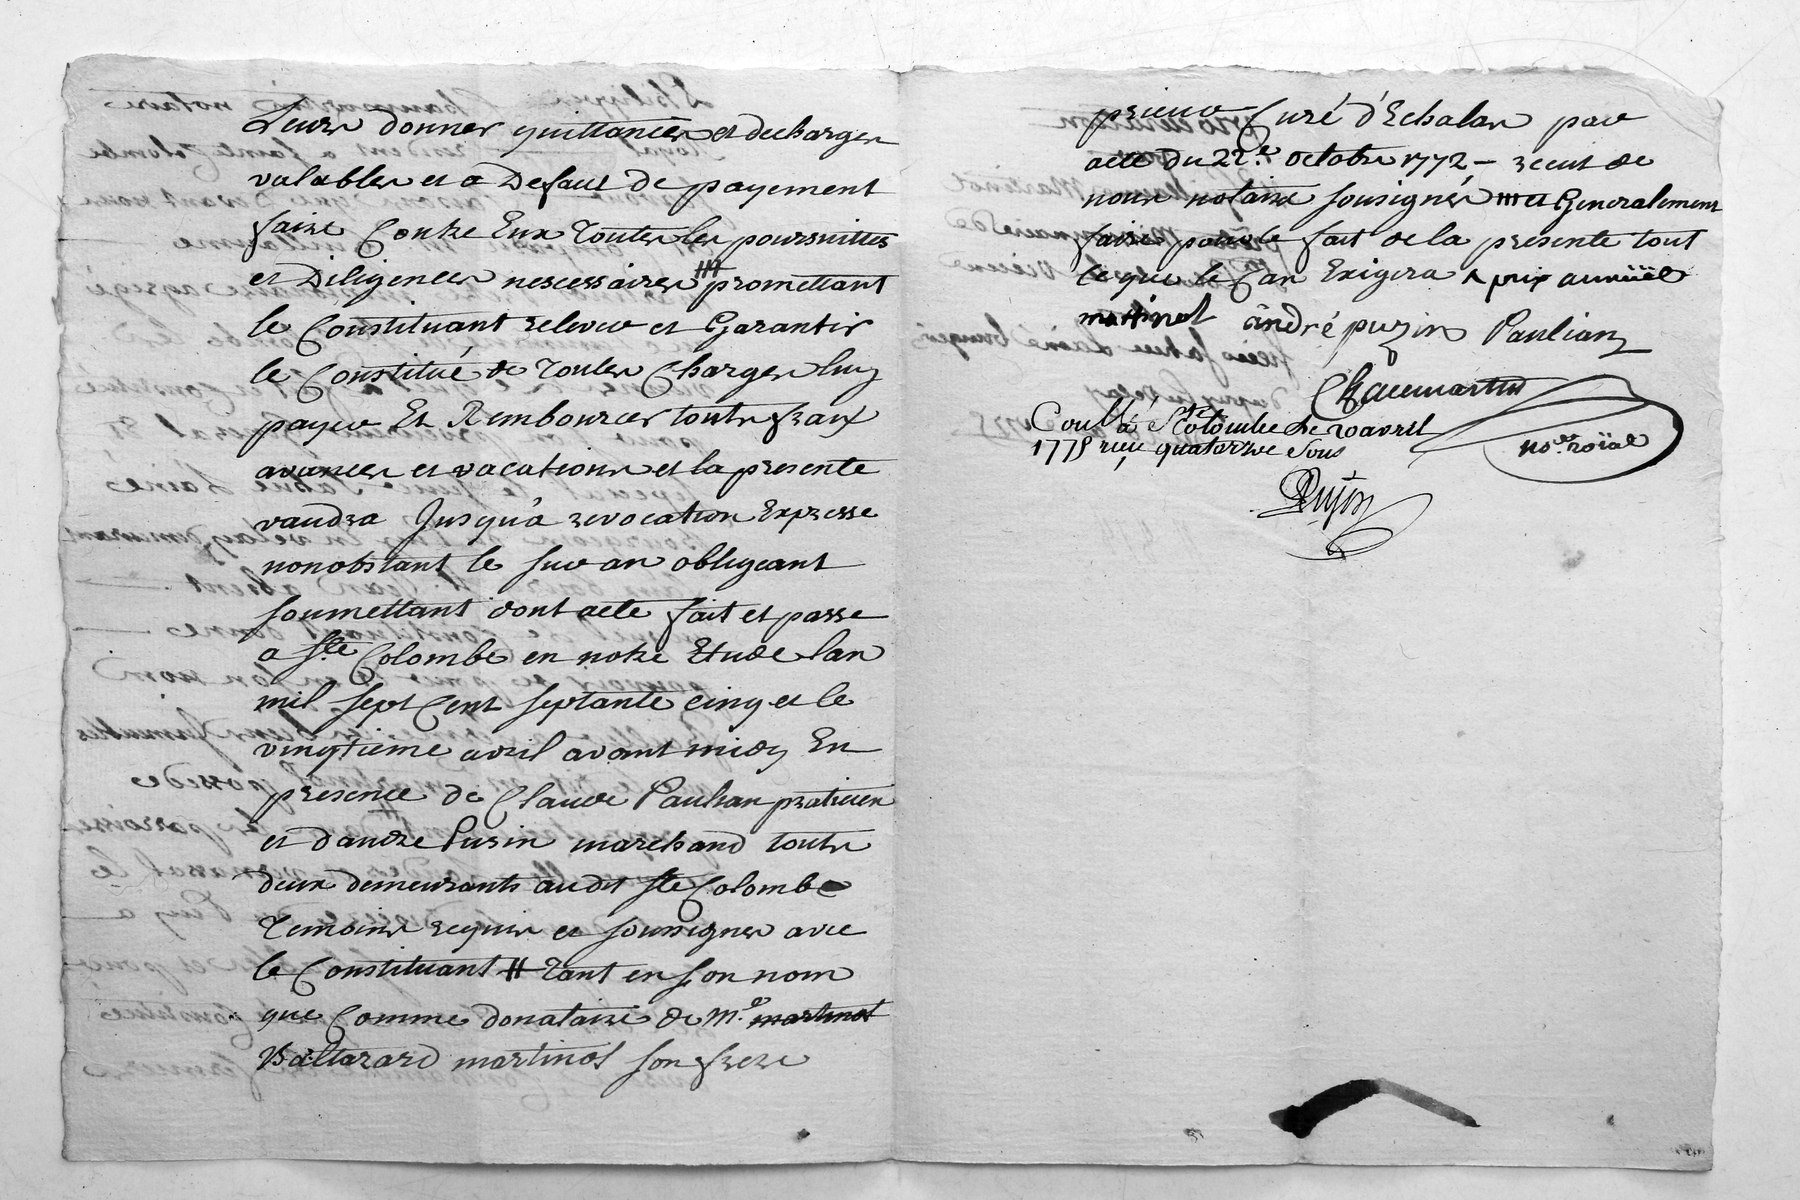 Leurs donner quittances et decharges
valables et a Defaut de payement
faire Contre Eux Toutes les poursuittes
et Diligences nescessaires ## promettant
le Constituant relever et Garantir
le Constitué de Toutes Charges luy
payer Et Rembourcer touts fraix
avances et vacations et la presente
vaudra Jusqu'a revocation Expresse
nonobstant le sur an obligeant
soumettant dont acte fait et passe
a Ste Colombe en notre Etude lan
mil sept Cent septante cinq et le
vingtieme avril avant midy En
presence de Claude Paulian praticien
et dandre Purin marchand touts
deux demeurants audit Ste Colombe
Temoins requis et soussignes avec
le Constituant # Tant en son nom
que Comme donataire de Me martinot
Baltazard martinot son frere
prieur Curé d'Echalas par
acte du 22e octobre 1772 - recut de
nous notaire sousignés ## et Generalement
faire pour le fait de la presente tout
ce que le Cas Exigera
martinot andré puzin Paulian
Chaumartin
nore roïal
Coullé a Ste Colombe le 20 avril
1775 reçu quatorze sous